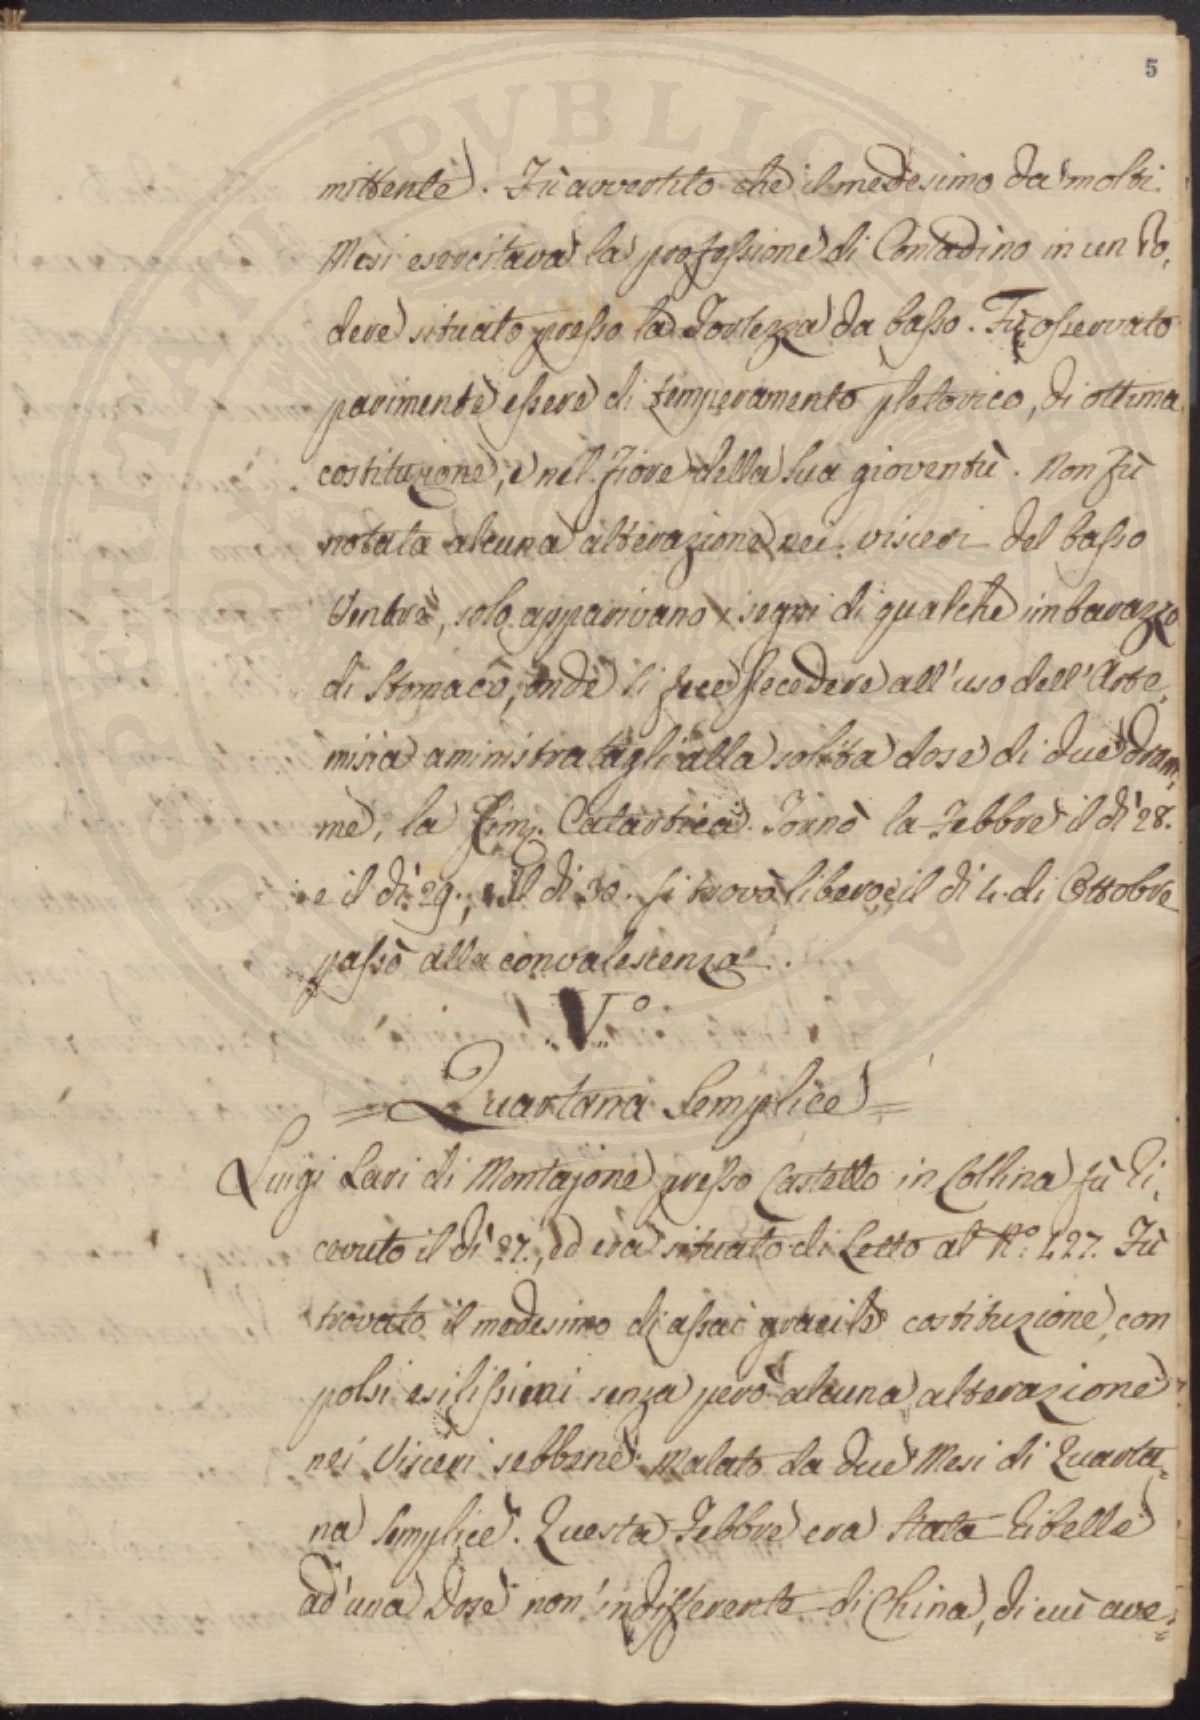 5
mittente. Fù avvertito che il medesimo da molti
Mesi esercitava la professione di Contadino in un Po,
dere situato presso la Fortezza da basso. Fù osservato
parimente essere di temperamento pletorico, di ottima
costituzione, e nel fiore della sua gioventù. Non fù
notata alcuna alterazione nei visceri del basso
Ventre, solo apparivano i segni di qualche imbarazzo
di Stomaco, onde si fece secedere all'uso dell'Arte,
misia aministratagli alla solita dose di due dram,
me, la Catartica. Tornò la Febbre il dì 28.
e il dì 29., il dì 30. si trovò libero e il dì 4. di Ottobre
passò alla convalescenza.
V.º
= Quartana Semplice =
Luigi Lari di Montajone presso Castello in Collina fù ri,
cevuto il dì 27., ed era situato di Letto al Nº: 427. Fù
trovato il medesimo di assai gracile costituzione, con
polsi esilissimi senza però alcuna alterazione
nei Visceri sebbene Malato da due Mesi di Quarta,
na Semplice. Questa Febbre era stata ribelle
ad'una Dose non indifferente di China, di cui ave,
PROSPERITATI PUBLICAE